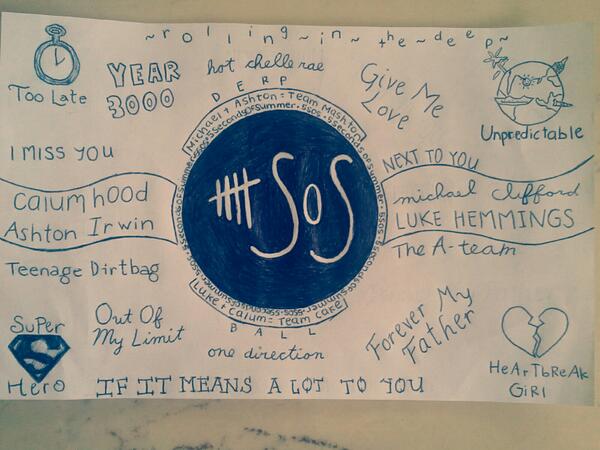 ~rolling~in~the~deep~
Too Late
YEAR
3000
hot chelle rae
DERP
Give Me
Love
Unpredictable
Michael + Ashton = Team Mashton
I MISS YOU
NEXT TO YOU
Calum hood
Ashton Irwin
SOS
michael clifford
LUKE HEMMINGS
Teenage Dirtbag
The A-team
Luke + Calum = Team Cake
BALL
Out Of
My Limit
Forever My
Father
Super
S
Hero
one direction
HeArTbReAk
GiRl
IF IT MEANS A LOT TO YOU